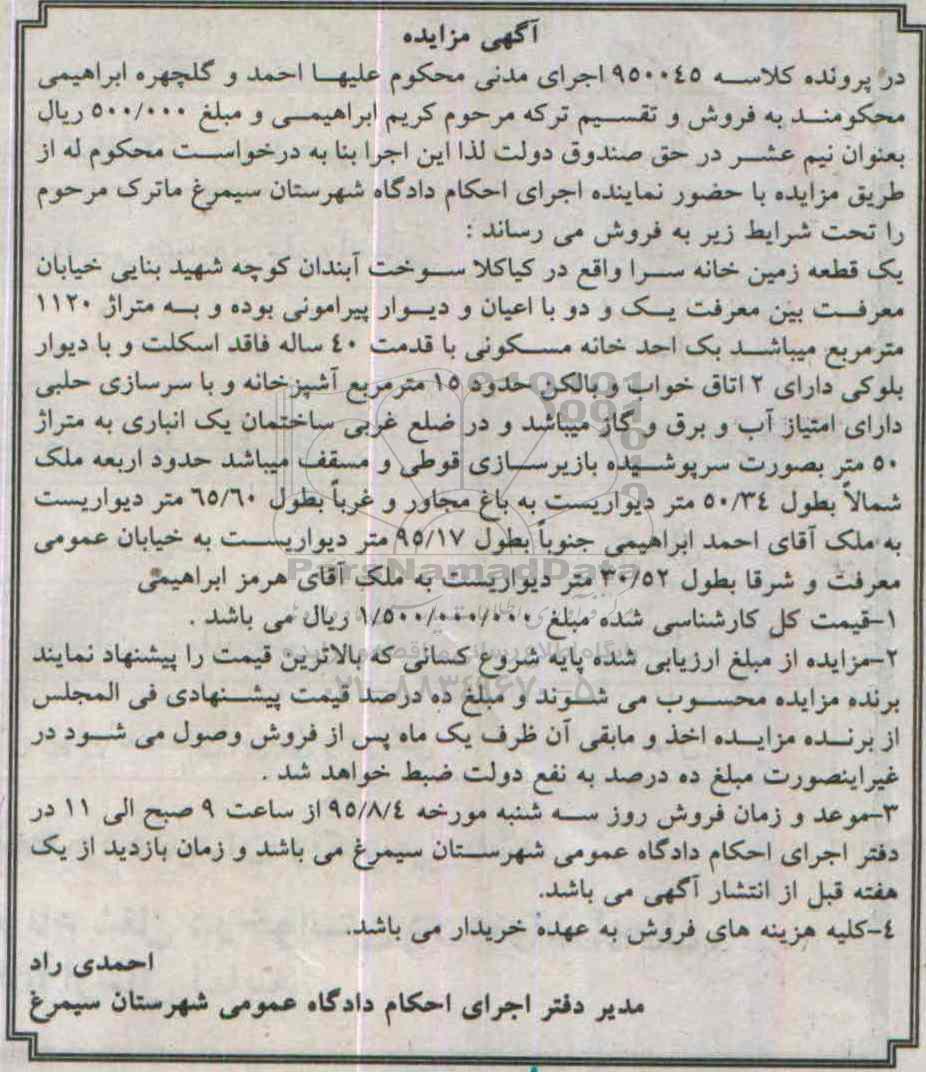 آگهی مزایده
در پرونده کلاسه ۹۵۰۰٤۵ اجرای مدنی محکوم علیها احمد و گلچهره ابراهیمی
محکومند به فروش و تقسیم ترکه مرحوم کریم ابراهیمی و مبلغ ۵۰۰/۰۰۰ ریال
بعنوان نیم عشر در حق صندوق دولت لذا این اجرا بنا به درخواست محکوم له از
طریق مزایده با حضور نماینده اجرای احکام دادگاه شهرستان سیمرغ ماترک مرحوم
را تحت شرایط زیر به فروش می رساند :
یک قطعه زمین خانه سرا واقع در کیاکلا سوخت آبندان کوچه شهید بنایی خیابان
معرفت بین معرفت یک و دو با اعیان و دیوار پیرامونی بوده و به متراژ ۱۱۲۰
مترمربع میباشد بک احد خانه مسکونی با قدمت ٤۰ ساله فاقد اسکلت و با دیوار
بلوکی دارای ۲ اتاق خواب و بالکن حدود ۱۵ مترمربع آشپزخانه و با سرسازی حلبی
دارای امتیاز آب و برق و گاز میباشد و در ضلع غربی ساختمان یک انباری به متراژ
۵۰ متر بصورت سرپوشیده بازیرسازی قوطی و مسقف میباشد حدود اربعه ملک
شمالاً بطول ۵۰/۳٤ متر دیواریست به باغ مجاور و غرباً بطول ٦۵/٦۰ متر دیواریست
به ملک آقای احمد ابراهیمی جنوباً بطول ۹۵/۱۷ متر دیواریست به خیابان عمومی
معرفت و شرقا بطول ۳۰/۵۲ متر دیواریست به ملک آقای هرمز ابراهیمی
ParsNamadData
۱-قیمت کل کارشناسی شده مبلغ ۱/۵۰۰/۰۰۰/۰۰۰ ریال می باشد .
۲-مزایده از مبلغ ارزیابی شده پایه شروع کسانی که بالاترین قیمت را پیشنهاد نمایند
برنده مزایده محسوب می شوند و مبلغ ده درصد قیمت پیشنهادی فی المجلس
از برنده مزایده اخذ و مابقی آن ظرف یک ماه پس از فروش وصول می شود در
غیراینصورت مبلغ ده درصد به نفع دولت ضبط خواهد شد .
۳-موعد و زمان فروش روز سه شنبه مورخه ۹۵/۸/٤ از ساعت ۹ صبح الی ۱۱ در
دفتر اجرای احکام دادگاه عمومی شهرستان سیمرغ می باشد و زمان بازدید از یک
هفته قبل از انتشار آگهی می باشد.
٤-کلیه هزینه های فروش به عهده خریدار می باشد.
احمدی راد
مدیر دفتر اجرای احکام دادگاه عمومی شهرستان سیمرغ